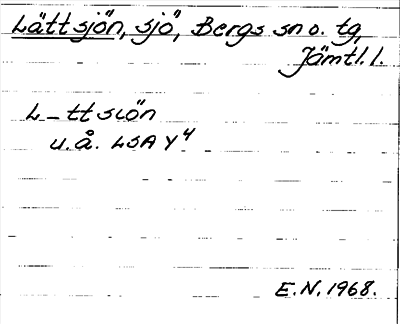 Lättsjön, sjö, Bergs sn o. tg,
Jämtl. l.
L-ttsiön
u.å. LSA Y4
E.N. 1968.